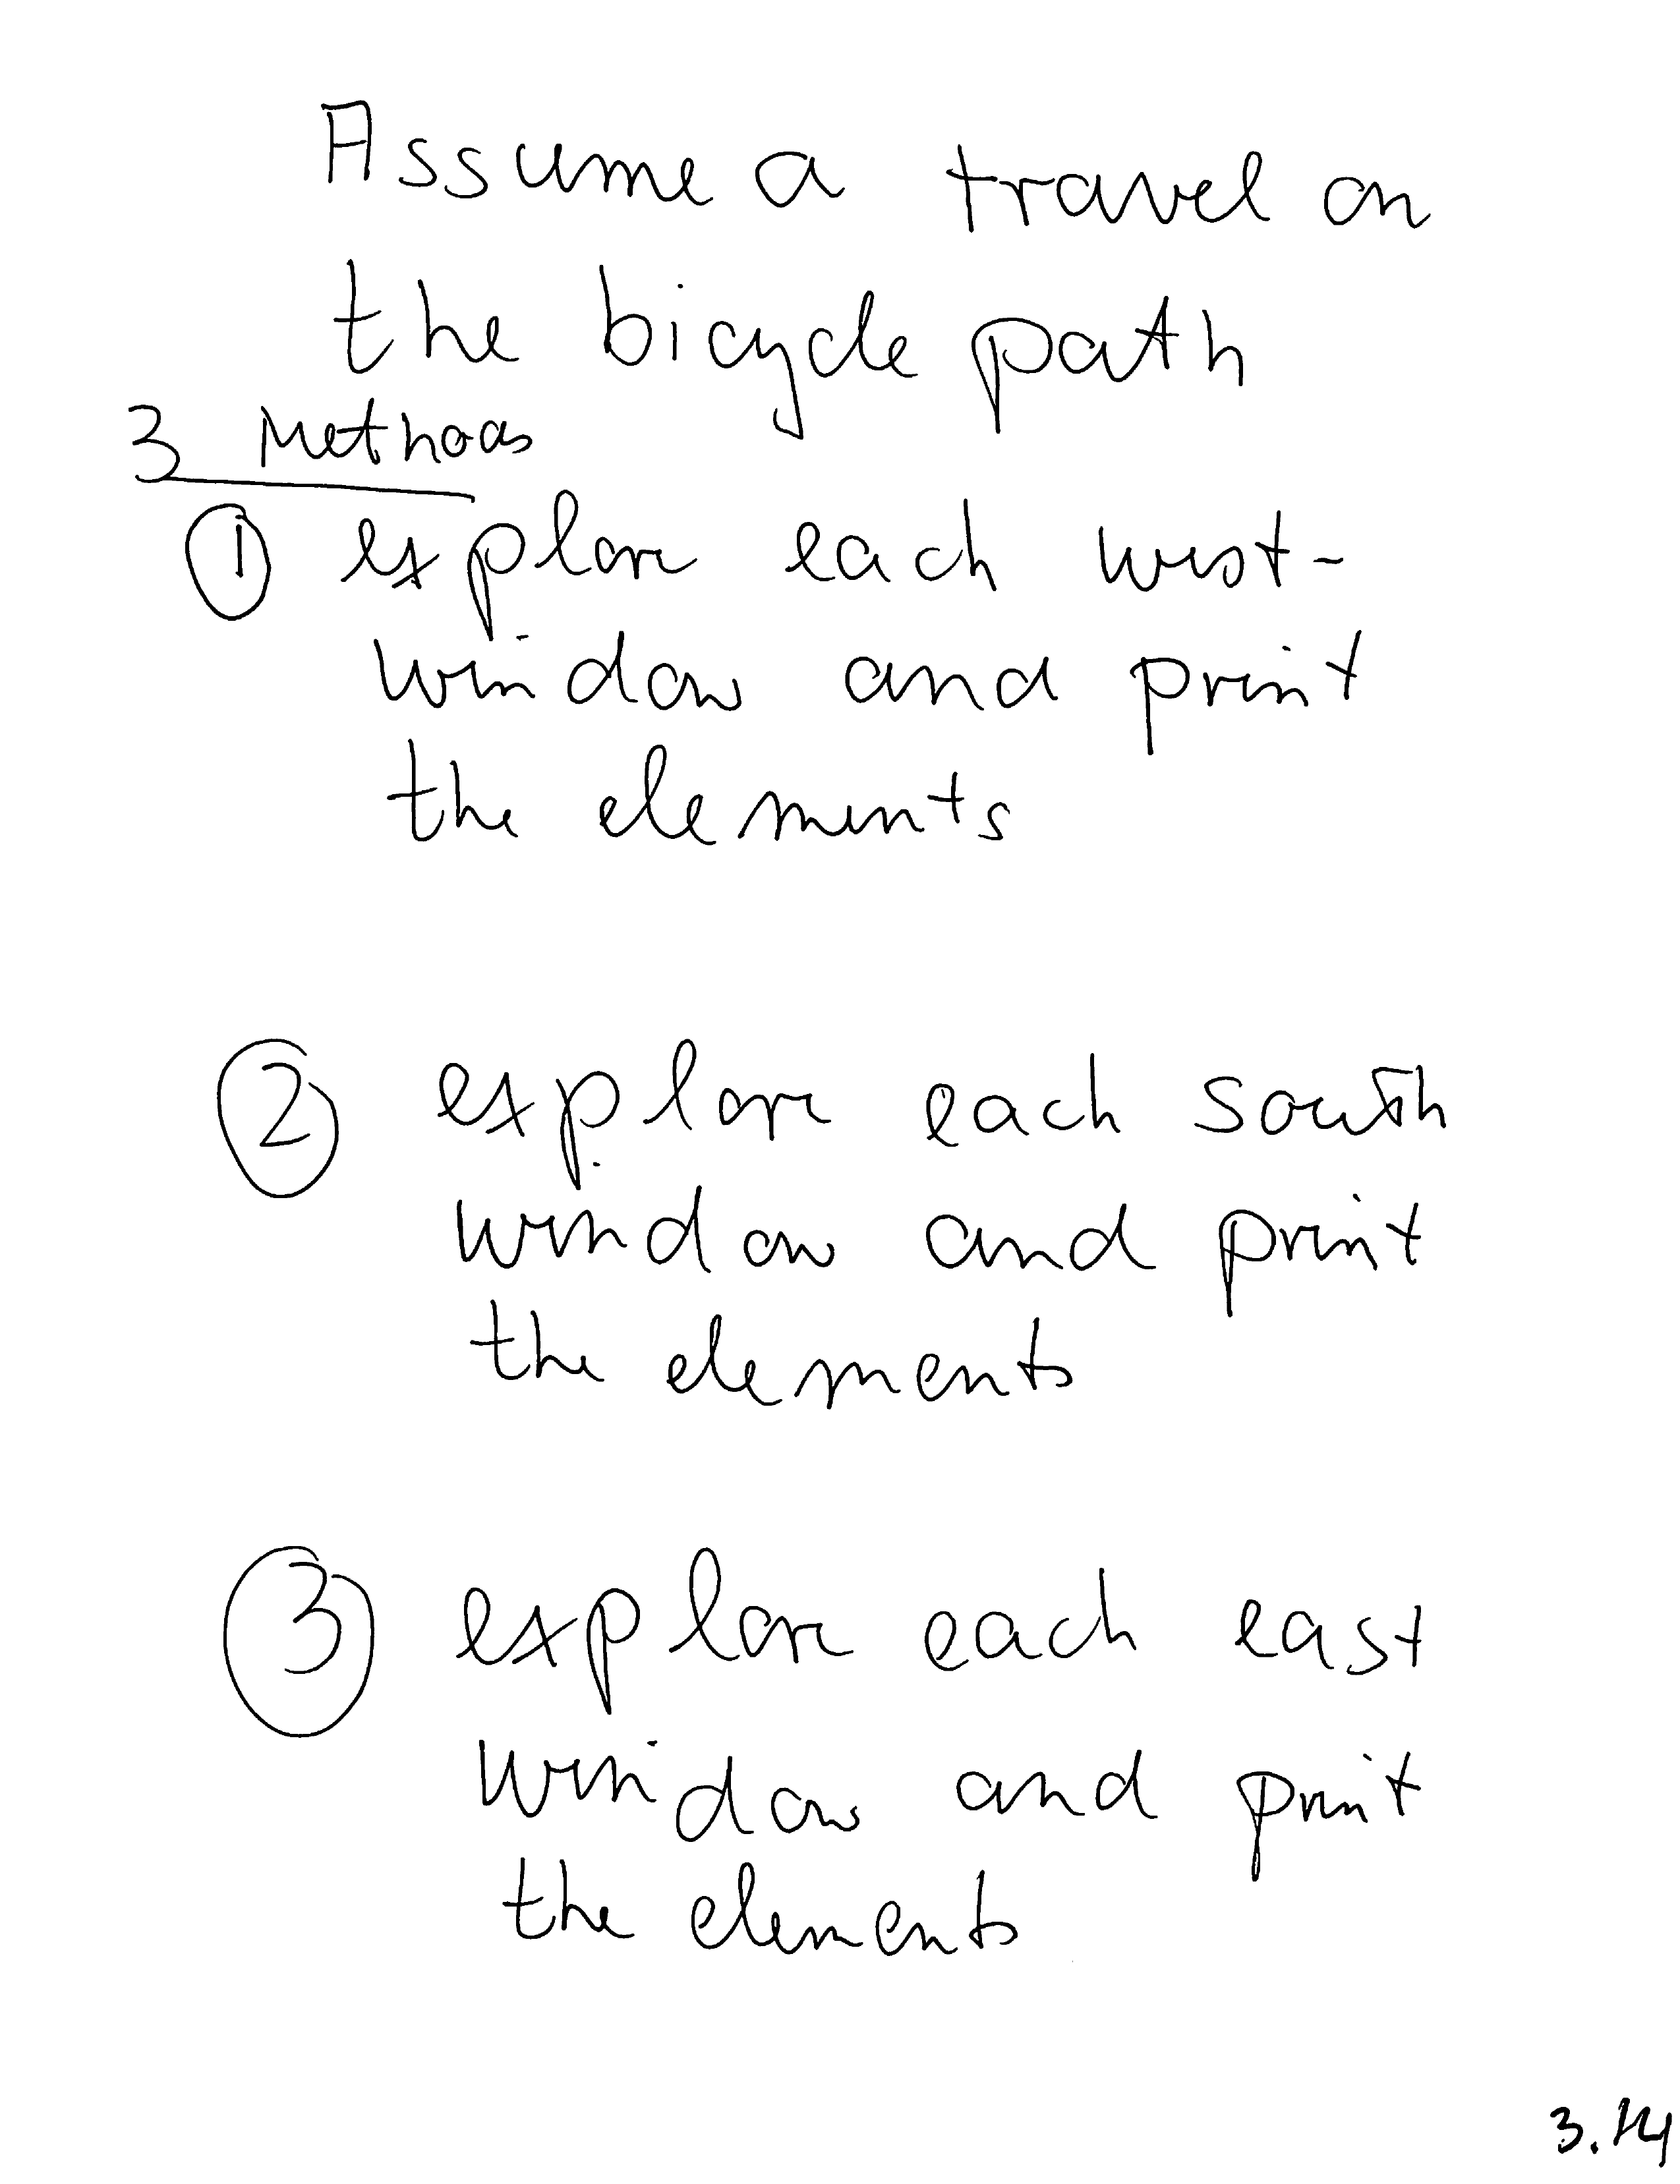 Assume a travel on
the bicycle path
3 Methods
① explore each west-
window and print
the elements
② explore each south
window and print
the elements
③ explore each east
window and print
the elements
3.14